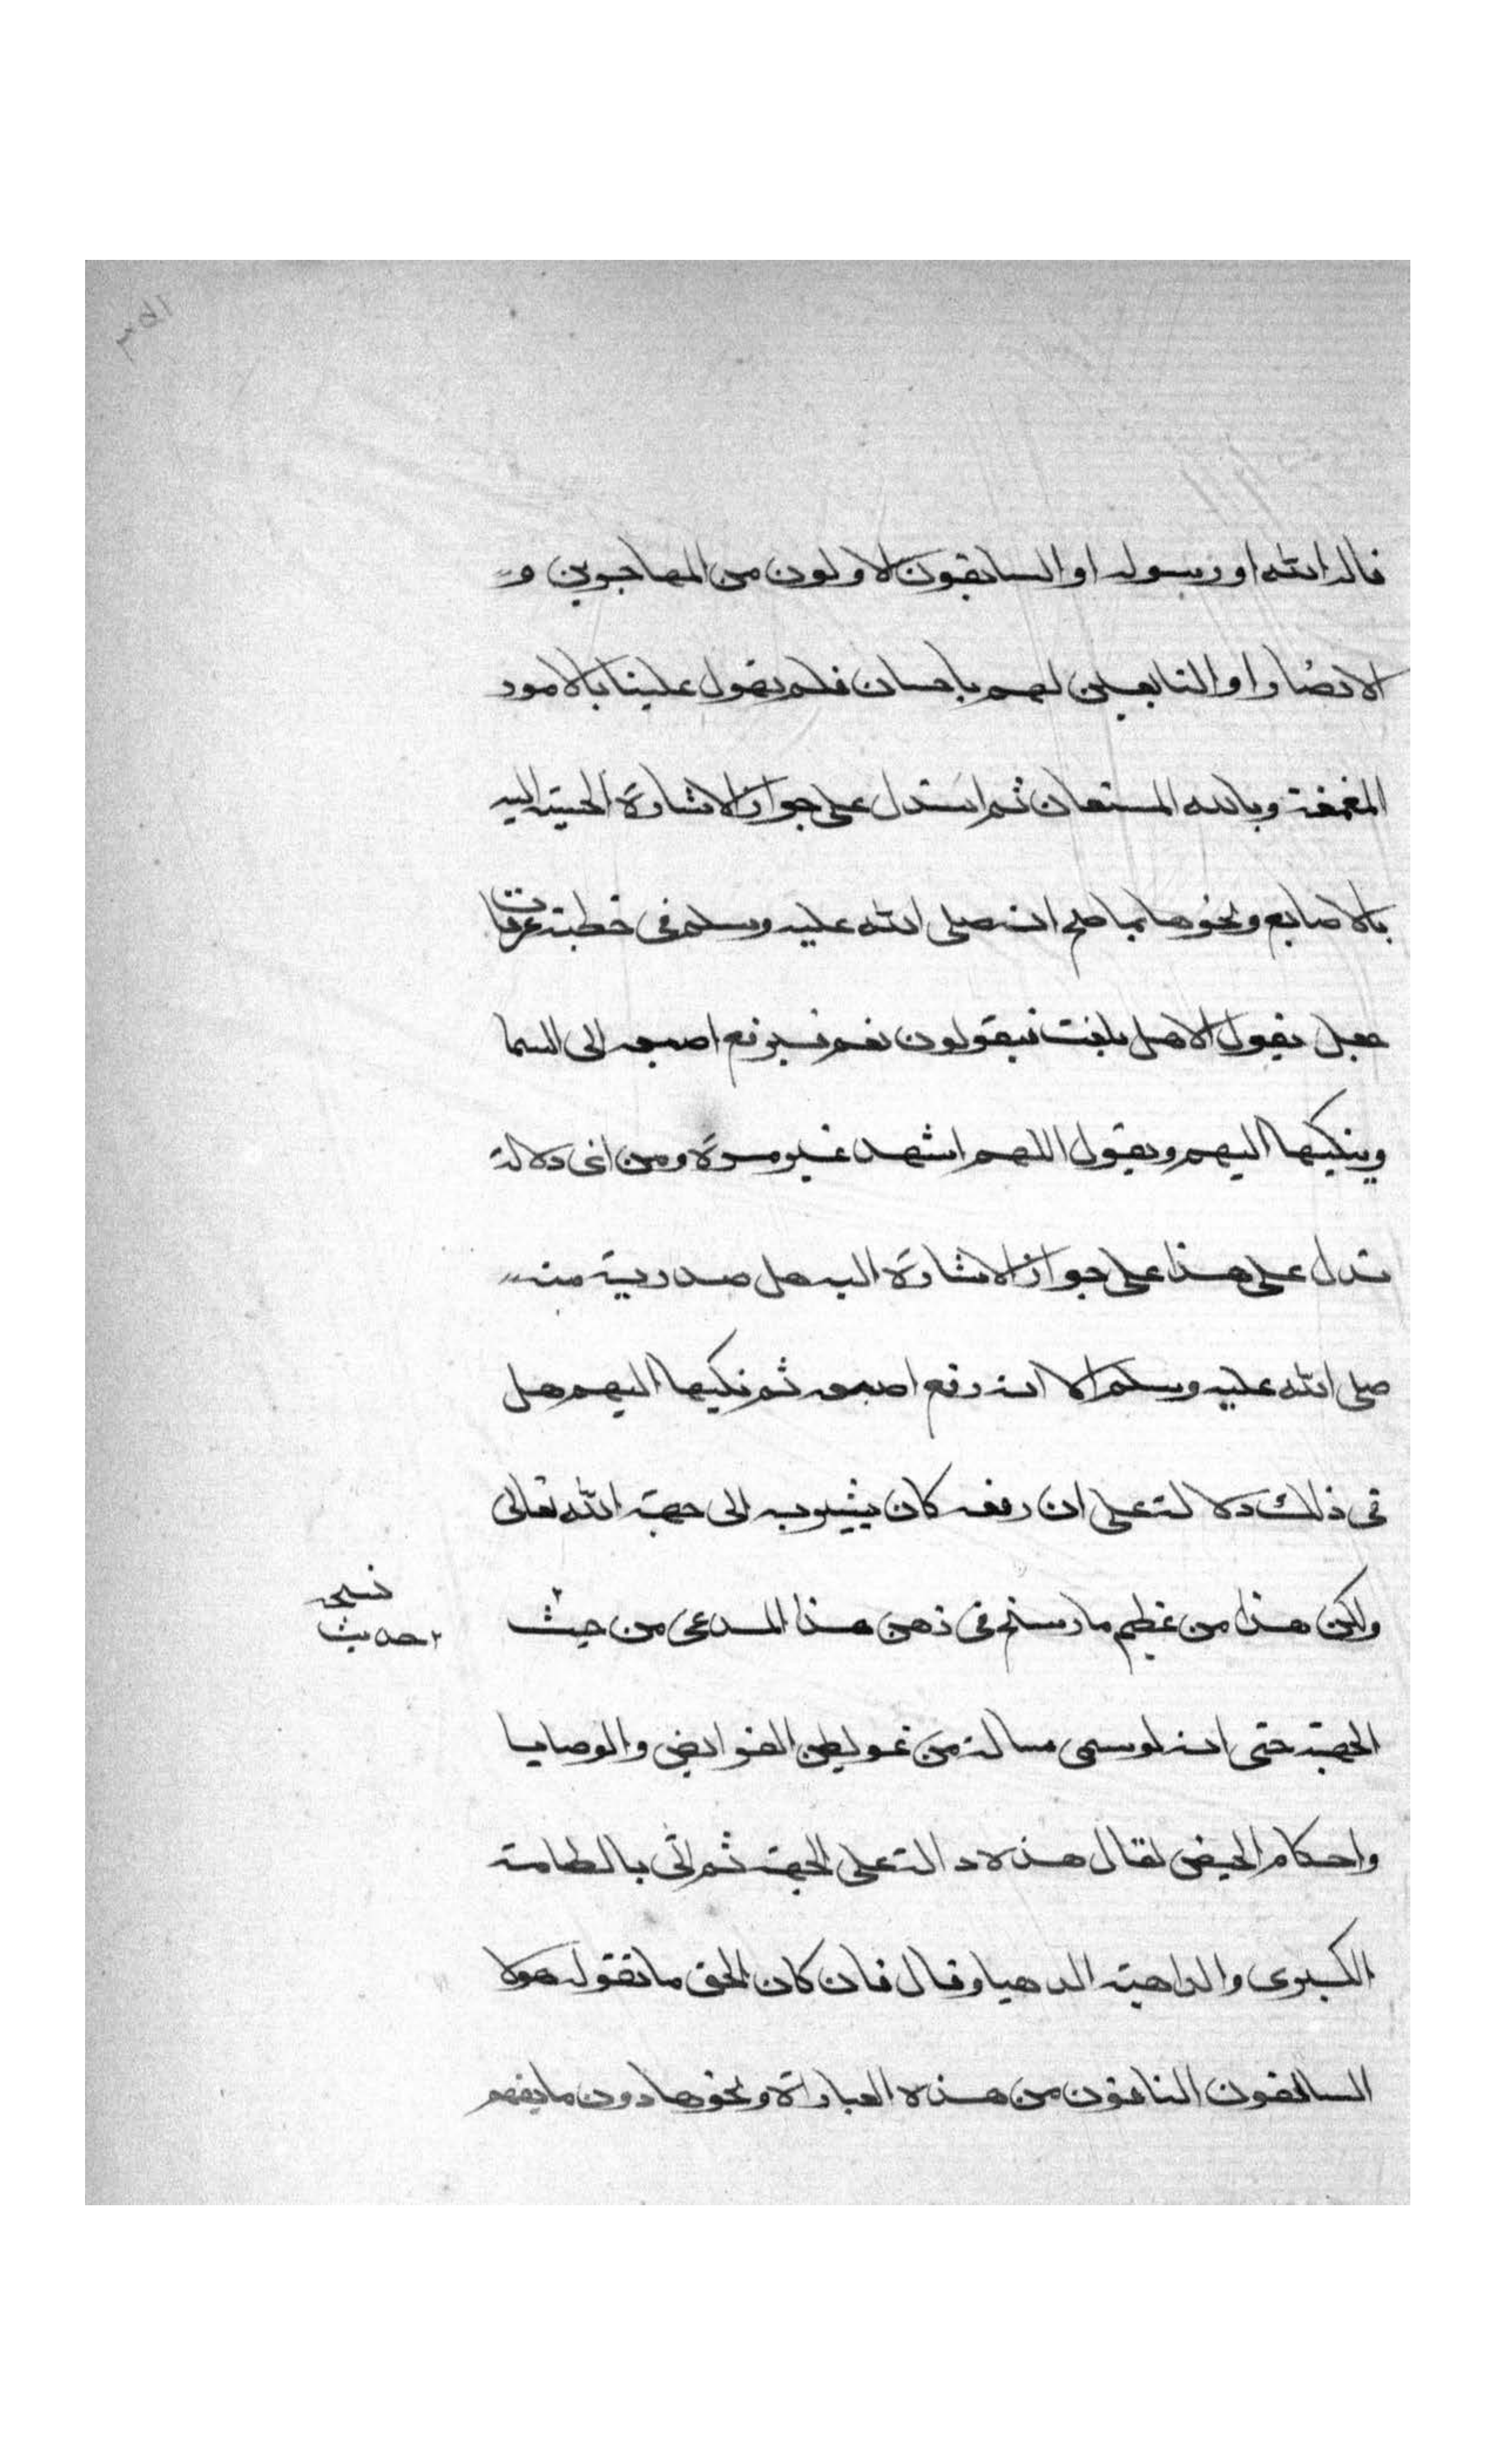 قاله الله او رسوله او السابقون الاولون من المهاجرين و
الانصار او التابعين لهم باحسان فلم يقول علينا بالامور
المغمغة وبالله المستعان ثم استدل على جواز الاشارة الحسية اليه
بالاصابع ونحوها بما صح انه صلى الله عليه وسلم في خطبة عرفات
جعل يقول الا هل بلغت فيقولون نعم فيرفع اصبعه الى السما
وينكبها اليهم ويقول اللهم اشهد غير مرة ومن اى دلالة
تدل على هذا على جواز الاشارة اليه هل صدر منه
صلى الله عليه وسلم الا انه رفع اصبعه ثم نكبها اليهم هل
فى ذلك دلالة على ان رفعه كان يشير به الى جهة الله تعالى
ولكن هذا من عظيم ما رسخ في ذهن هذا المدعى من حيث
نسخه
حديث
الجهة حتى انه لو سمع مسالة من عويص الفرايض والوصايا
واحكام الحيض لقال هذه دالة على الجهة ثم اتى بالطامة
الكبرى والداهية الدهيا وقال فان كان الحق ما يقوله هولا
السالفون النافون من هذه العبارات ونحوها دون ما يفهم